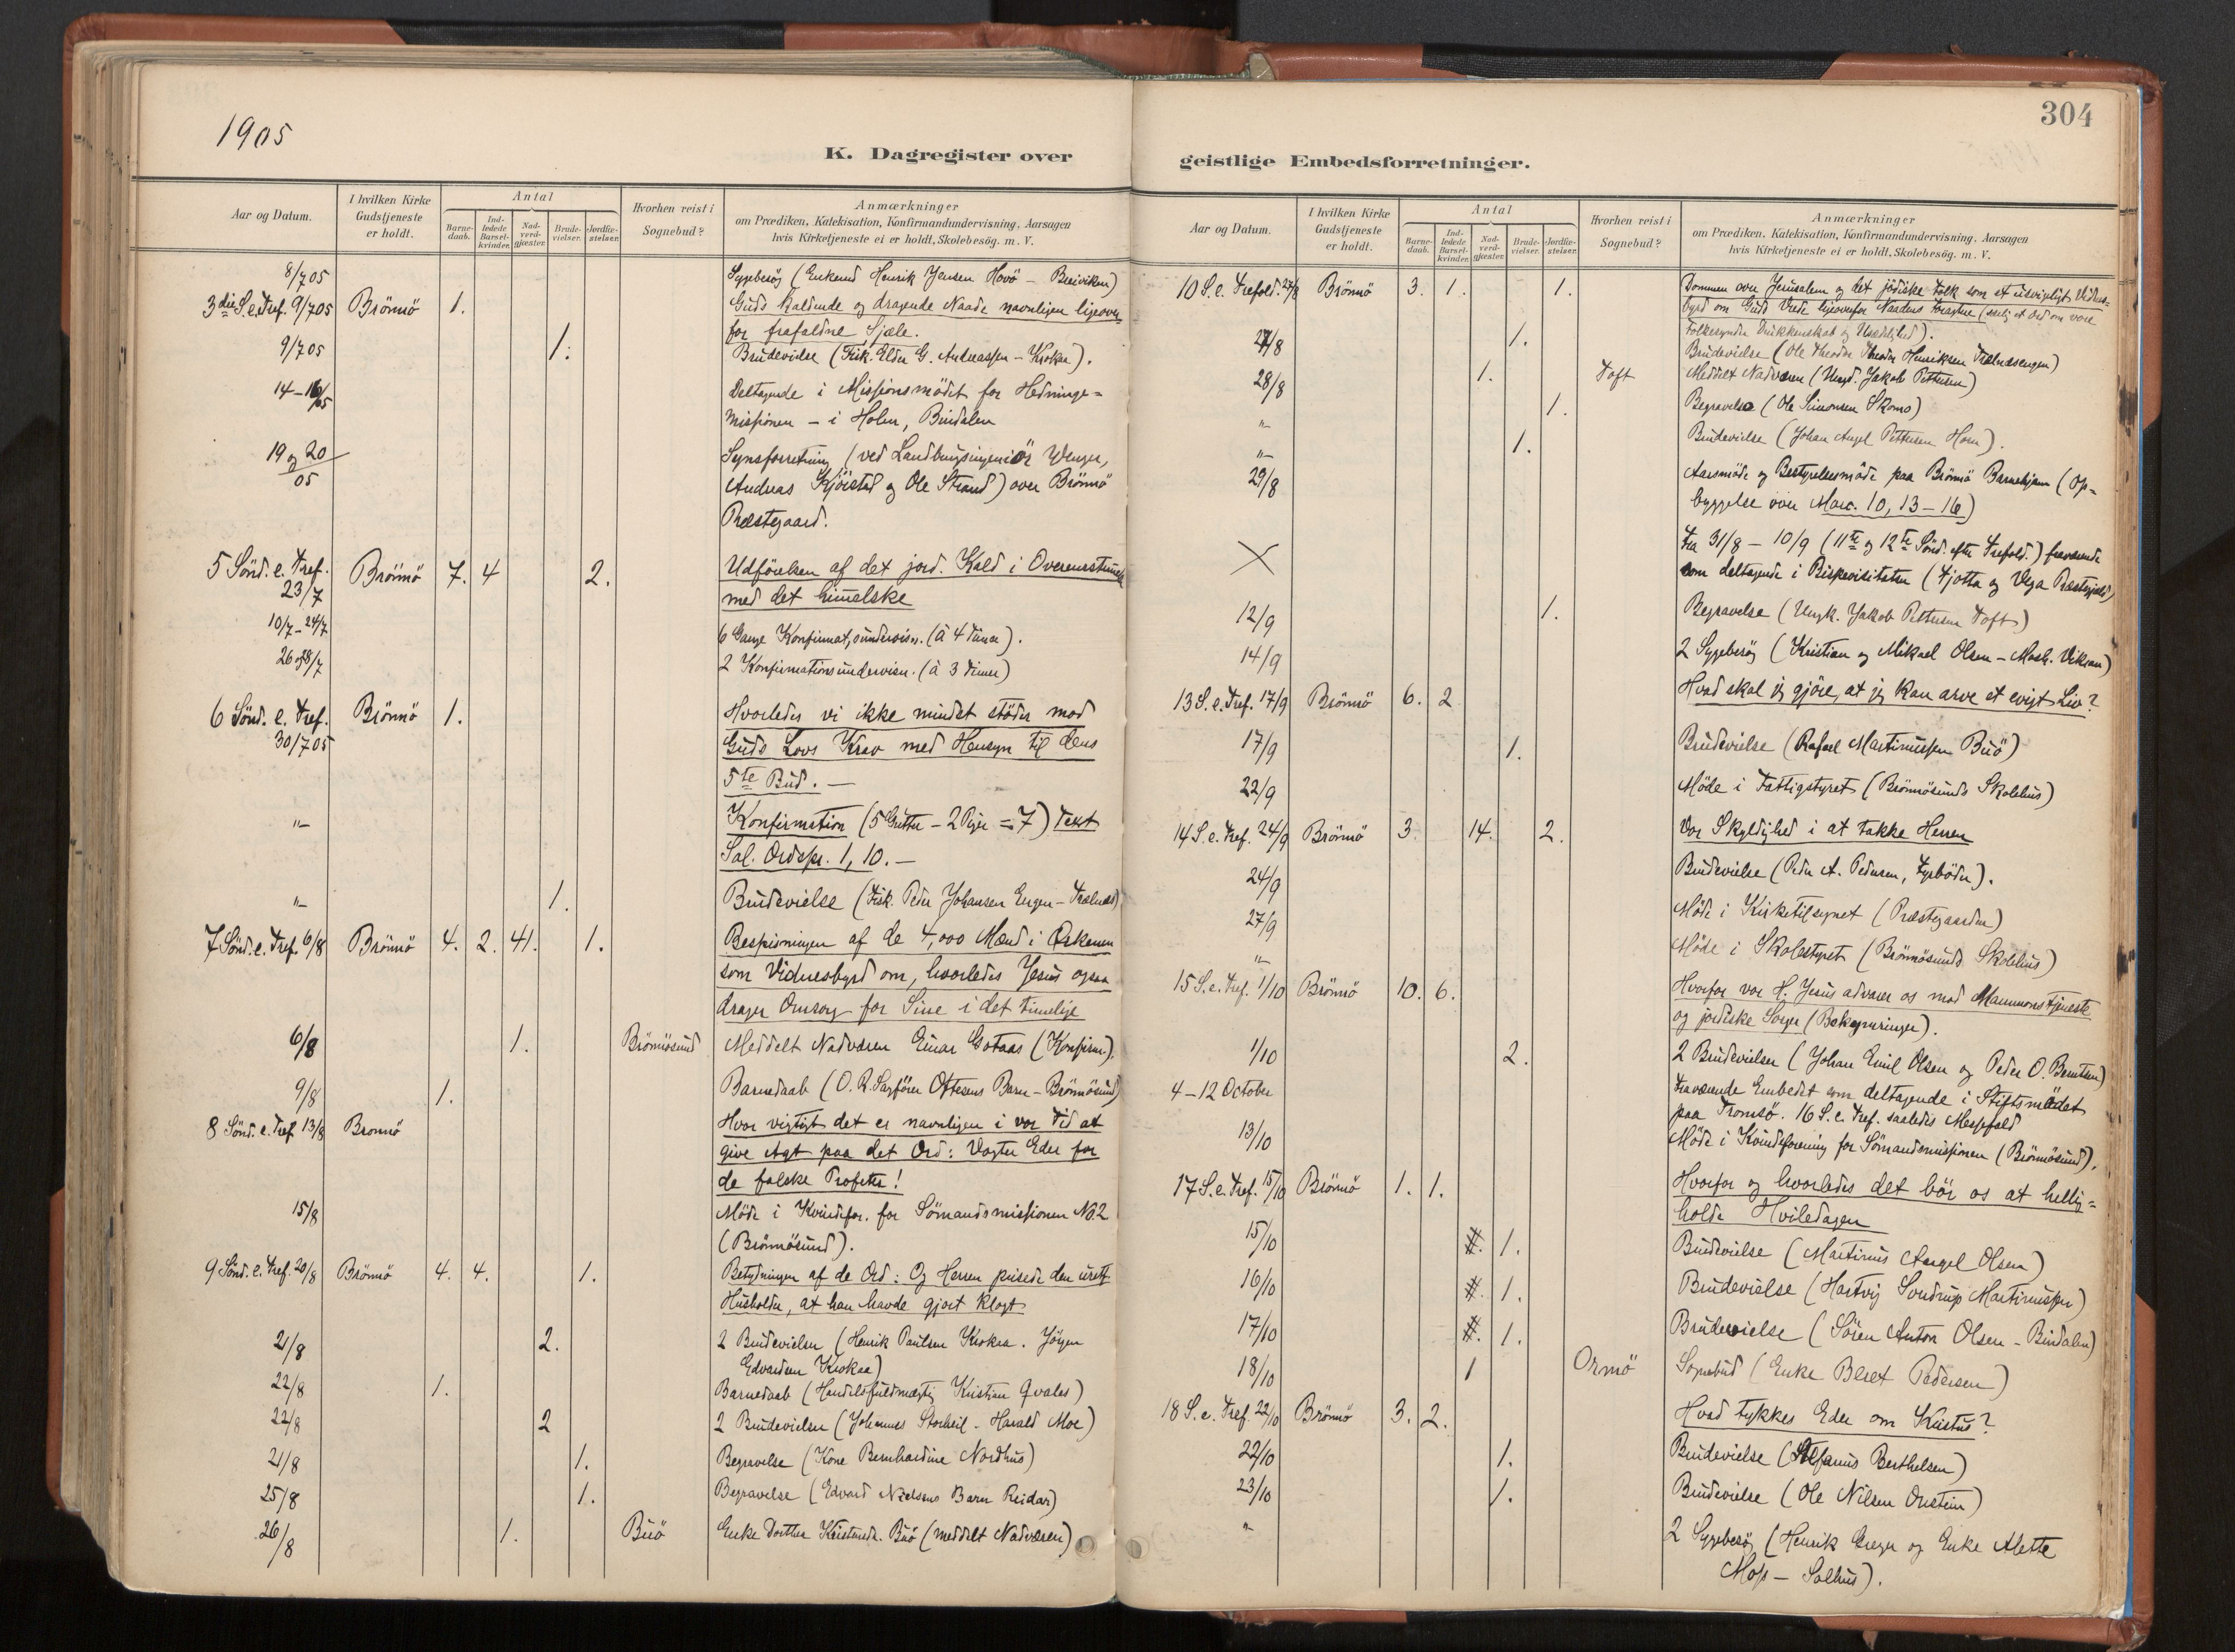 1905
K. Dagregister over
Aar og Datum.
I hvilken Kirke
Gudstjeneste
er holdt.
Antal
Barne-
daab.
Ind-
ledede
Barsel-
kvinder.
Nad-
verd-
gjæster.
Brude-
vielser.
Jordfæ-
stelser.
Hvorhen reist i
Sognebud?
Anmærkninger
om Prædiken, Katekisation, Konfirmandundervisning, Aarsagen
hvis Kirketjeneste ei er holdt, Skolebesög. m. V.
8/7 05 Sygebesög (Enkemd Henrik Jensen Hovö – Breiviken)
3die S. e. Tref. 9/7 05 Brönnö 1. Guds kaldende og dragende Naade navnligen ligeover
for frafaldne Sjæle.
9/7 05 1. Brudevielse (Fisk. Elder G. Andreassen – Kroken).
14–16/05 Deltagende i Missionsmödet for Hedninge-
missionen – i Holm, Bindalen
19 og 20/05 Synsforretning (ved Landbrugsingeniör Wenger,
Andreas Kjöistad og Ole Strand) over Brönnö
Præstegaard.
5 Sönd. e. Tref.
23/7 Brönnö 7. 4 2. Udförelsen af det jord. Kald i Overensstemm
med det himelske
10/7–24/7 6 Gange Konfirmat.sundervisn. (à 4 Timer).
26 og 28/7 2 Konfirmationsundervisn. (à 3 Timer)
6 Sönd. e. Tref.
30/7 05 Brönnö 1. Hvorledes vi ikke mindst stöder mod
Guds Lovs Krav med Hensyn til dens
5te Bud. –
"– Konfirmation (5 Gutter – 2 Piger = 7) Text
Sal. Ordspr. 1, 10. –
"– 1. Brudevielse (Fisk. Peder Johansen Engen – Trælnæs)
7 Sönd. e. Tref. 6/8 Brönnö 4. 2. 41. 1. Bespisningen af de 4,000 Mænd i Örkenen
som Vidnesbyrd om, hvorledes Jesus ogsaa
drager Omsorg for Sine i det timelige
6/8 1. Brönnösund Meddelt Nadværen Einar Gotaas (Konfirm).
9/8 1. Barnedaab (O. R. Sagförer Ottesens Barn – Brönnösund)
8 Sönd. e. Tref. 13/8 Bronnö Hvor vigtigt det er navnligen i vor Tid at
give Agt paa det Ord: Vogter Eder for
de falske Profeter!
15/8 Möde i Kvindefor. for Sömandsmissionen No. 2
(Brönnösund).
9 Sönd. e. Tref. 20/8 Brönnö 4. 4. 1. Betydningen af de Ord: Og Herren prisede den urett.
Husholder, at han havde gjort klogt
21/8 2. 2 Brudevielser (Henrik Paulsen Krokaa. Jörgen
Edvardsen Krokaa)
22/8 1. Barnedaab (Handelsfuldmægtig Kristian Qvales)
22/8 2 2 Brudevielser (Johannes Storheil – Harald Moe)
21/8 1. Begravelse (Kone Bernhardine Nordhus)
25/8 1. Begravelse (Edvard Nielsens Barn Reidar)
26/8 1. Buö Enke Dorthea Kristensd. Buö (meddelt Nadværen)
304
geistlige Embedsforretninger.
Aar og Datum.
I hvilken Kirke
Gudstjeneste
er holdt.
Antal
Barne-
daab.
Ind-
ledede
Barsel-
kvinder.
Nad-
verd-
gjæster.
Brude-
vielser.
Jordfæ-
stelser.
Hvorhen reist i
Sognebud?
Anmærkninger
om Prædiken, Katekisation, Konfirmandundervisning, Aarsagen
hvis Kirketjeneste ei er holdt, Skolebesög. m. V.
10 S. e. Trefold. 27/8 Brönnö 3. 1. 1. Dommen over Jerusalem og det jödiske Folk som et usvigeligt Vidnes-
byrd om Guds Vrede ligeoverfor Naadens Foragtere (særlig et Ord om vore
Folkesynder Drukkenskab og Usædelighed).
27/8 1. Brudevielse (Ole Theodor Henriksen Trælnæsengen)
28/8 1. Toft Meddelt Nadværen (Ungd. Jakob Pettersen)
"– 1. Begravelse (Ole Simonsen Skomo)
"– 1. Brudevielse (Johan Angel Pettersen Horn).
29/8 Aarsmöde og Bestyrelsesmöde paa Brönnö Barnehjem (Op-
byggelse over Marc. 10, 13–16)
Fra 31/8 – 10/9 (11te og 12te Sönd. efter Trefold.) fraværende
som deltagende i Bispevisitatsen (Tjötta og Vega Præstegjeld)
12/9 1. Begravelse (Ungk. Jakob Pettersen Toft)
14/9 2 Sygebesög (Kristian og Mikael Olsen – Mosh. Viksaas)
13 S. e. Tref. 17/9 Brönnö 6. 2 Hvad skal jeg gjöre, at jeg kan arve et evigt Liv?
17/9 1. Brudevielse (Rafael Martinussen Buö)
22/9 Möde i Fattigstyret (Brönnösunds Skolehus)
14 S. e. Tref. 24/9 Brönnö 3. 14. 2. Vor Skyldighed i at takke Herren
24/9 Brudevielse (Peder A. Pedersen, Fyrböder).
27/9 Möde i Kirketilsynet (Præstegaarden)
"– Möde i Skolestyret (Brönnösunds Skolehus)
15 S. e. Tref. 1/10 Brönnö 10. 6. Hvorfor vor H. Jesus advarer os mod Mammons Tjeneste
og jordiske Sorger (Bekymringer).
1/10 2. 2 Brudevielser (Johan Emil Olsen og Peder O. Berntsen)
4–12 October Fraværende Embedet som deltagende i Stiftsmödet
paa Tromsö. 16 S. e. Tref. saaledes Messefald
13/10 Möde i Kvindeforening for Sömandsmissionen (Brönnösund).
17 S. e. Tref. 15/10 Brönnö 1. 1. Hvorfor og hvorledes det bör os at hellig-
holde Hviledagen
15/10 1. Brudevielse (Martinus Angel Olsen)
16/10 1. Brudevielse (Hartvig Sondrup Martinussen)
17/10 1. Brudevielse (Sören Anton Olsen – Bindalen)
18/10 1 Ormö Sognebud (Enke Beret Pedersen)
18 S. e. Tref. 22/10 Brönnö 3. 2. Hvad tykkes Eder om Kristus?
22/10 1. Brudevielse (Stefanus Berthelsen)
23/10 1. Brudevielse (Ole Nilsen Onstein)
"– 2 Sygebesög (Henrik Greger og Enke Alette
Moss – Salhus).